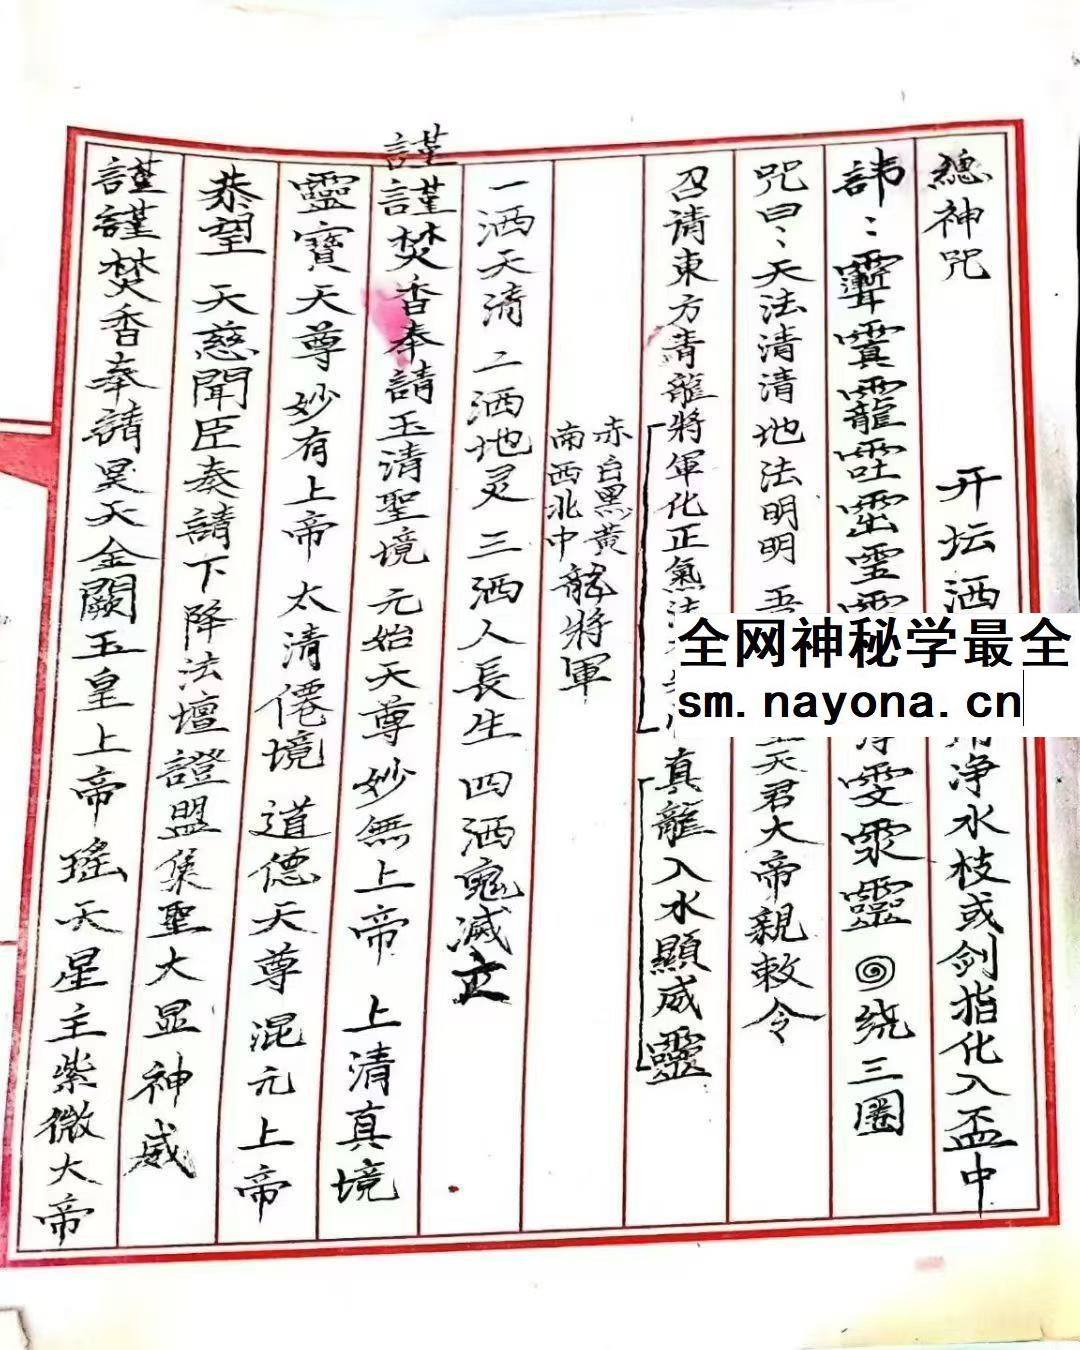 總神咒 开坛洒 净水枝或剑指化入盃中
諱：靈 绕三圈
咒曰：天法清清 地法明明 天君大帝親敕令
召请東方青龍將軍化正氣 真龍入水顯威靈
赤白黑黄
南西北中龍將軍
一洒天清 二洒地灵 三洒人長生 四洒鬼滅亡
謹謹焚香奉請玉清聖境 元始天尊 妙無上帝 上清真境
靈寶天尊 妙有上帝 太清僊境 道德天尊 混元上帝
恭望 天慈聞臣奏請下降法壇證盟集聖大显神威
謹謹焚香奉請昊天金闕玉皇上帝瑤天星主紫微大帝
全网神秘学最全
sm.nayona.cn